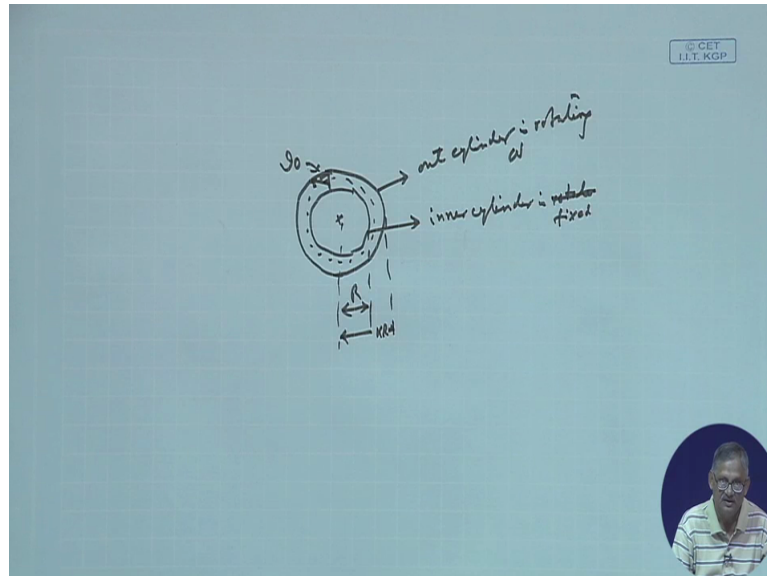 © CET
I.I.T. KGP
outer cylinder is rotating
ω
inner cylinder is
fixed
R
KR